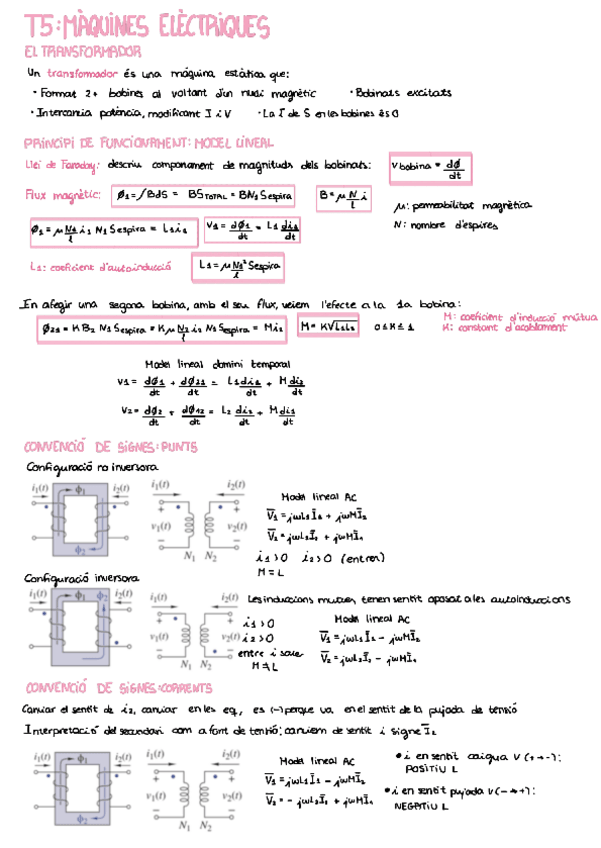 T5: MÀQUINES ELÈCTRIQUES
EL TRANSFORMADOR
Un transformador és una màquina estàtica que:
· Format 2+ bobines al voltant d'un nucli magnètic · Bobinats excitats
· Intercanvia potència, modificant I i V · La Γ de S en les bobines és 0
PRINCIPI DE FUNCIONAMENT: MODEL LINEAL
Llei de Faraday: descriu comportament de magnituds dels bobinats: V bobina = dØ/dt
Flux magnètic: Ø1 = ∫BdS = BS TOTAL = BN1 Sespira B = μ N/l i
μ: permeabilitat magnètica
N: nombre d'espires
Ø1 = μ N1/l i1 N1 Sespira = L1i1 V1 = dØ1/dt = L1 di1/dt
L1: coeficient d'autoinducció L1 = μ N1²/l Sespira
En afegir una segona bobina, amb el seu flux, veiem l'efecte a la 1a bobina:
Ø21 = K B2 N1 Sespira = K μ N2/l i2 N1 Sespira = Mi2 M = K√L1L2 0 ≤ K ≤ 1
M: coeficient d'inducció mútua
K: constant d'acoblament
Model lineal domini temporal
V1 = dØ1/dt + dØ21/dt = L1 di1/dt + M di2/dt
V2 = dØ2/dt + dØ12/dt = L2 di2/dt + M di1/dt
CONVENCIÓ DE SIGNES: PUNTS
Configuració no inversora
i1(t) ϕ1 i2(t) ϕ2
i1(t) i2(t) + + v1(t) v2(t) − − N1 N2
Model lineal AC
V̄1 = jωL1Ī1 + jωMĪ2
V̄2 = jωL2Ī2 + jωMĪ1
i1 > 0 i2 > 0 (entren)
M = L
Configuració inversora
i1(t) ϕ1 ϕ2 i2(t)
i1(t) i2(t) + + v1(t) v2(t) − − N1 N2
Les induccions mutues, tenen sentit oposat a les autoinduccions
i1 > 0
i2 > 0
entre i surt
M ≠ L
Model lineal AC
V̄1 = jωL1Ī1 − jωMĪ2
V̄2 = jωL2Ī2 − jωMĪ1
CONVENCIÓ DE SIGNES: CORRENTS
Canviar el sentit de i2, canviar en les eq, es (−) perque va en el sentit de la pujada de tensió
Interpretació del secundari com a font de tensió: canviem de sentit i signe Ī2
i1(t) ϕ1 i2(t) ϕ2
i1(t) i2(t) + + v1(t) v2(t) − − N1 N2
Model lineal AC
V̄1 = jωL1Ī1 − jωMĪ2
V̄2 = − jωL2Ī2 + jωMĪ1
• i en sentit caiguda V (+→−):
POSITIU L
• i en sentit pujada V (−→+):
NEGATIU L